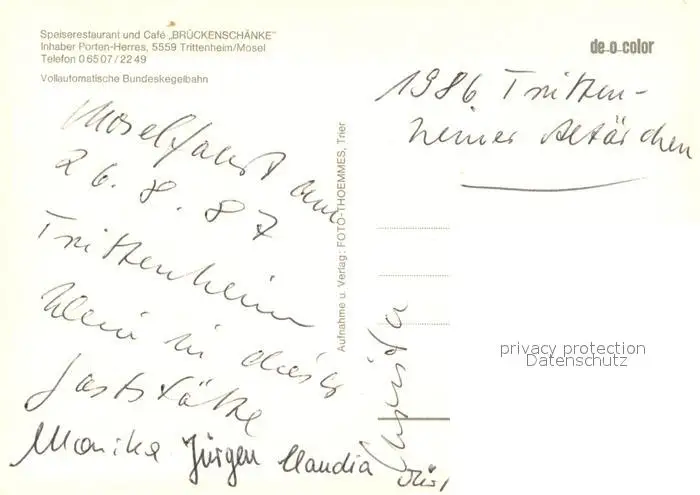 Speiserestaurant und Café „BRÜCKENSCHÄNKE"
Inhaber Porten-Herres, 5559 Trittenheim/Mosel
Telefon 0 65 07 / 22 49
Vollautomatische Bundeskegelbahn
de-o-color
Moselfahrt am
26.8.87
Trittenheim
Wein in dieser
Gaststätte
Monika Jürgen Claudia
Aufnahme u. Verlag: FOTO-THOEMMES, Trier
1986 Tritten-
heimer Altärchen
privacy protection
Datenschutz